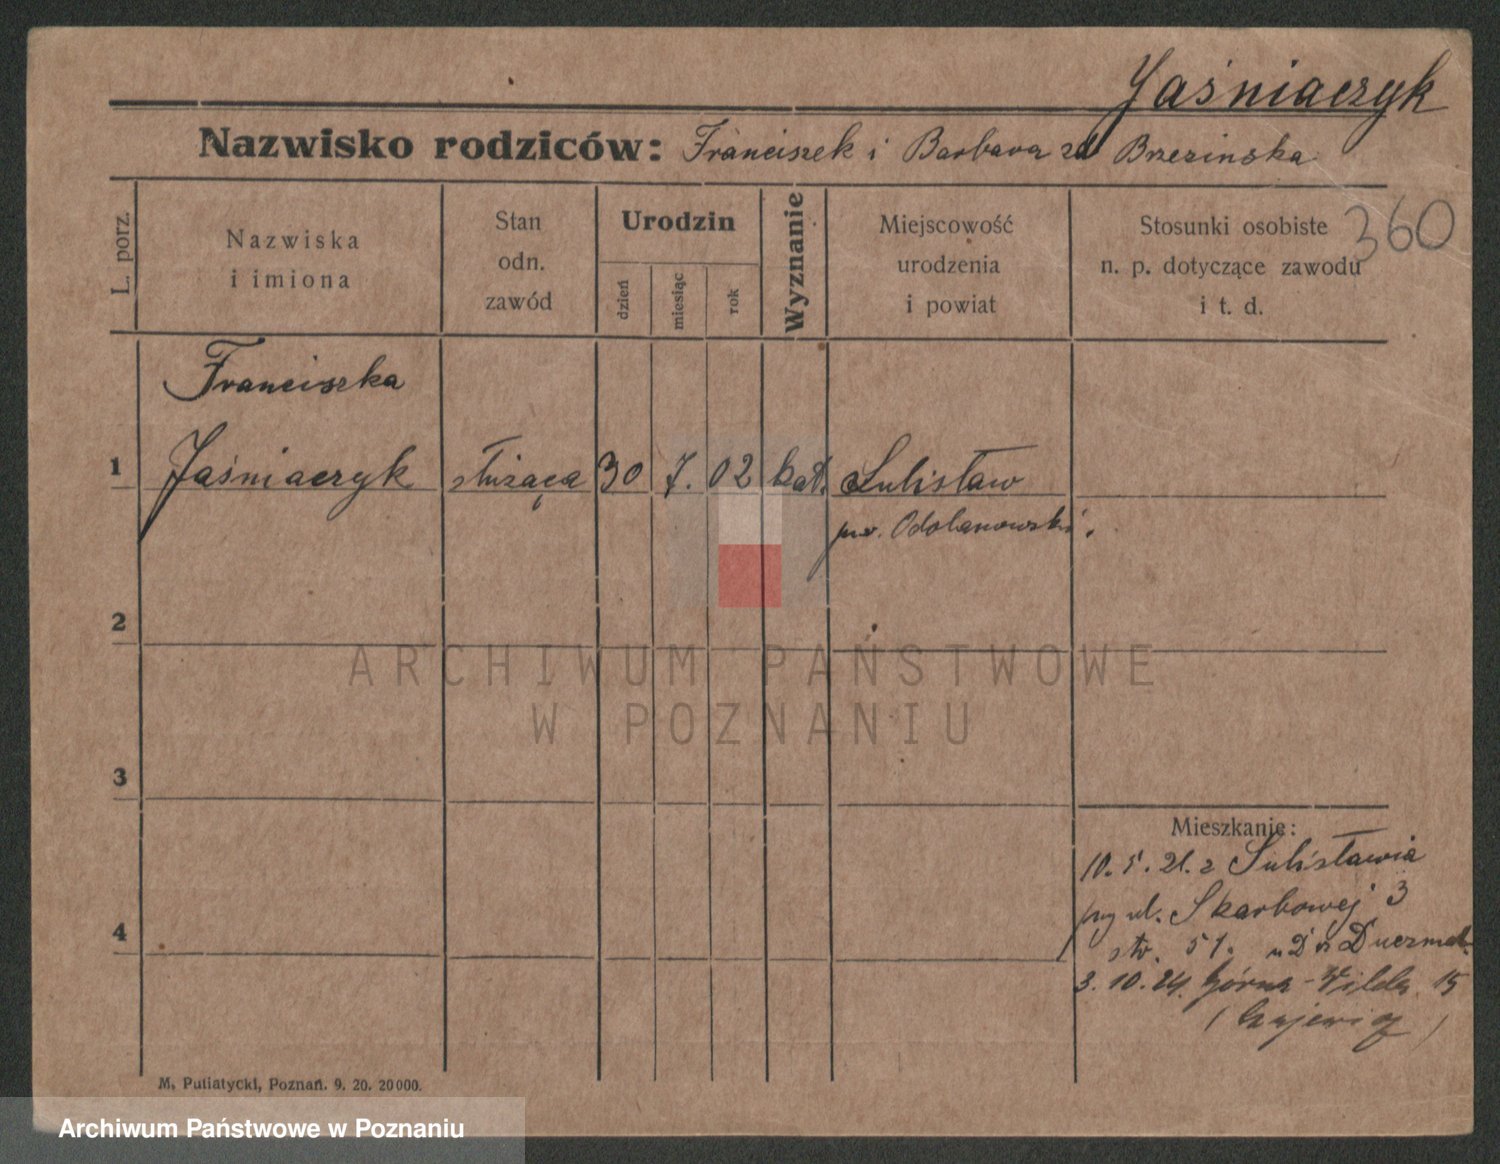 Jaśniaczyk
Nazwisko rodziców: Franciszek i Barbara zd Brzezińska
360
L. porz.
Nazwiska
i imiona
Stan
odn.
zawód
Urodzin
dzień
miesiąc
rok
Wyznanie
Miejscowość
urodzenia
i powiat
Stosunki osobiste
n. p. dotyczące zawodu
i t. d.
Franciszka
1 Jaśniaczyk służąca 30 7. 02 kat. Sulisław
pow. Odolanowski.
2
3
4
Mieszkanie:
10. 5. 21. z Sulisławia
przy ul. Skarbowej 3
str. 51. u Dr
3. 10. 24. Górna-Wilda 15
M. Putiatycki, Poznań. 9. 20. 20000.
ARCHIWUM PAŃSTWOWE
W POZNANIU
Archiwum Państwowe w Poznaniu